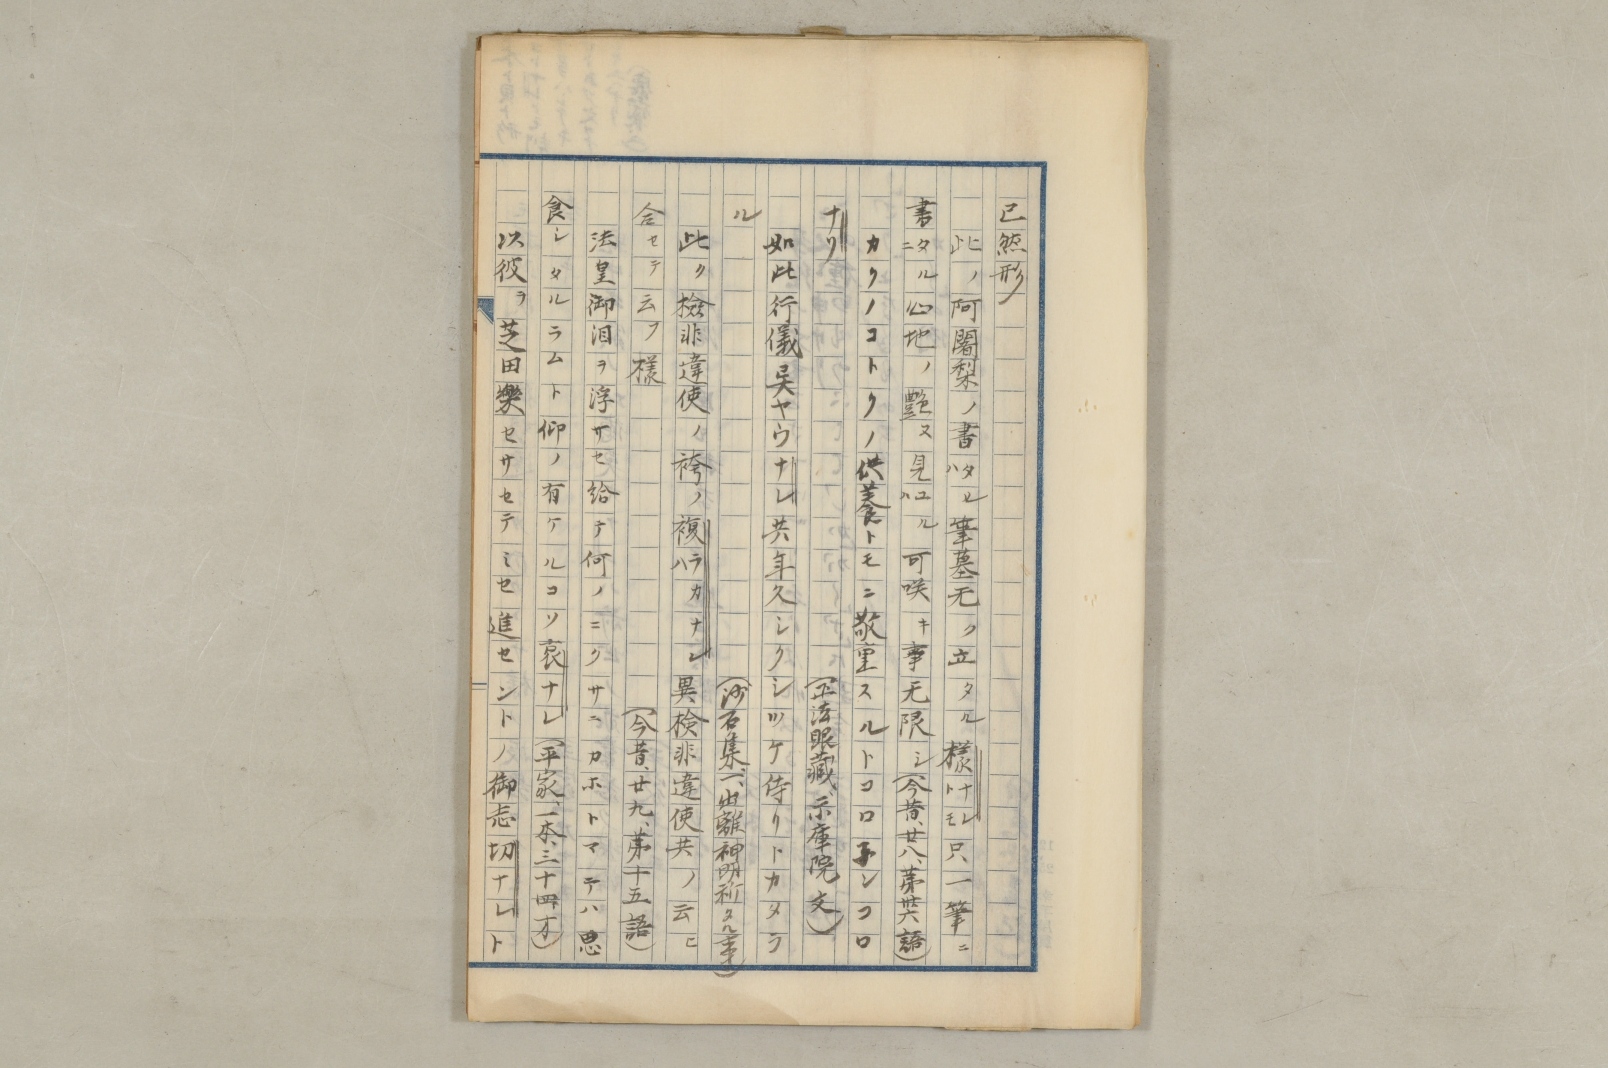 已然形
此ノ阿闍梨ノ書タルハ筆墨无ク立タル様ナレトモ只一筆ニ
書タルニ心地ノ艶ヌ見ユルハ可咲キ事无限シ(今昔、廿八、第卅六語)
カクノコトクノ供養トモニ敬重スルトコロ子ンコロ
ナリ(正法眼藏、示庫院文)
如此行儀異ヤウナレ共年久シクシツケ侍リトカタラ
ル(沙石集、一、出離神明祈タル事)
此ク檢非違使ノ袴ノ複ラハカナレ異檢非違使共ノ云ヒ
合セテ云フ様(今昔、廿九、第十五語)
法皇御泪ヲ浮サセ給テ何ノニクサニカホトマテハ思
食シタルラムト仰ノ有ケルコソ哀ナレ(平家、一本、三十四オ)
以彼ヲ芝田樂セサセテミセ進セントノ御志切ナレト